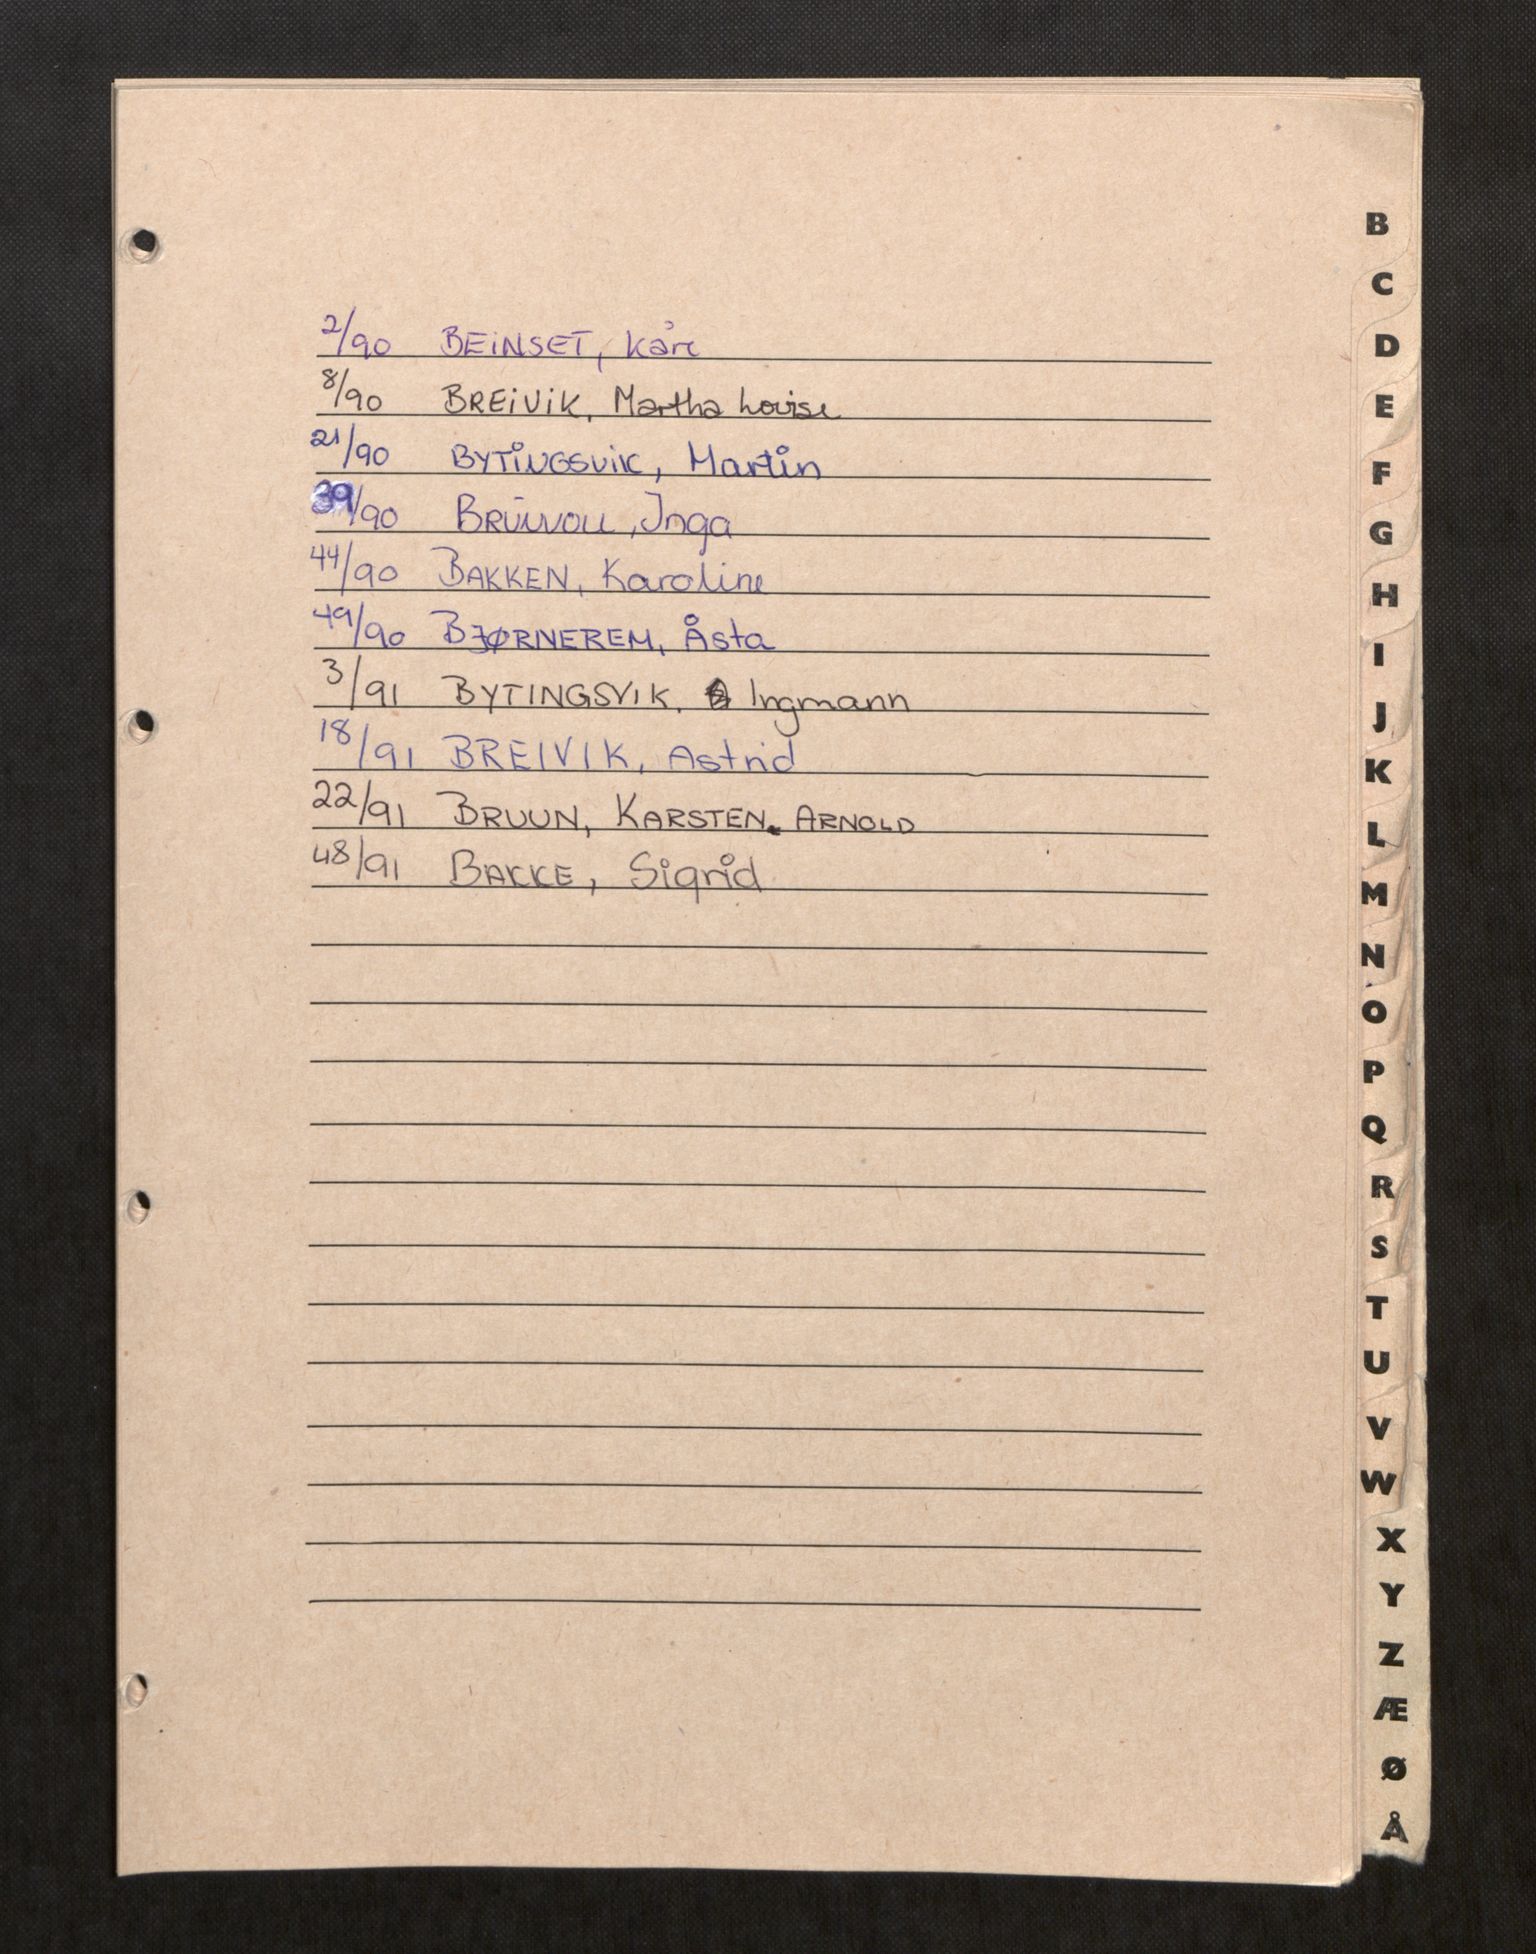 2/90 BEINSET, Kåre
8/90 BREIVIK, Martha Lovise
21/90 BYTINGSVIK, Martin
39/90 BRUNVOLL, Inga
44/90 BAKKEN, Karoline
49/90 BJØRNEREM, Åsta
3/91 BYTINGSVIK, Ingmann
18/91 BREIVIK, Astrid
22/91 BRUUN, KARSTEN ARNOLD
48/91 BAKKE, Sigrid
B
C
D
E
F
G
H
I
J
K
L
M
N
O
P
Q
R
S
T
U
V
W
X
Y
Z
Æ
Ø
Å